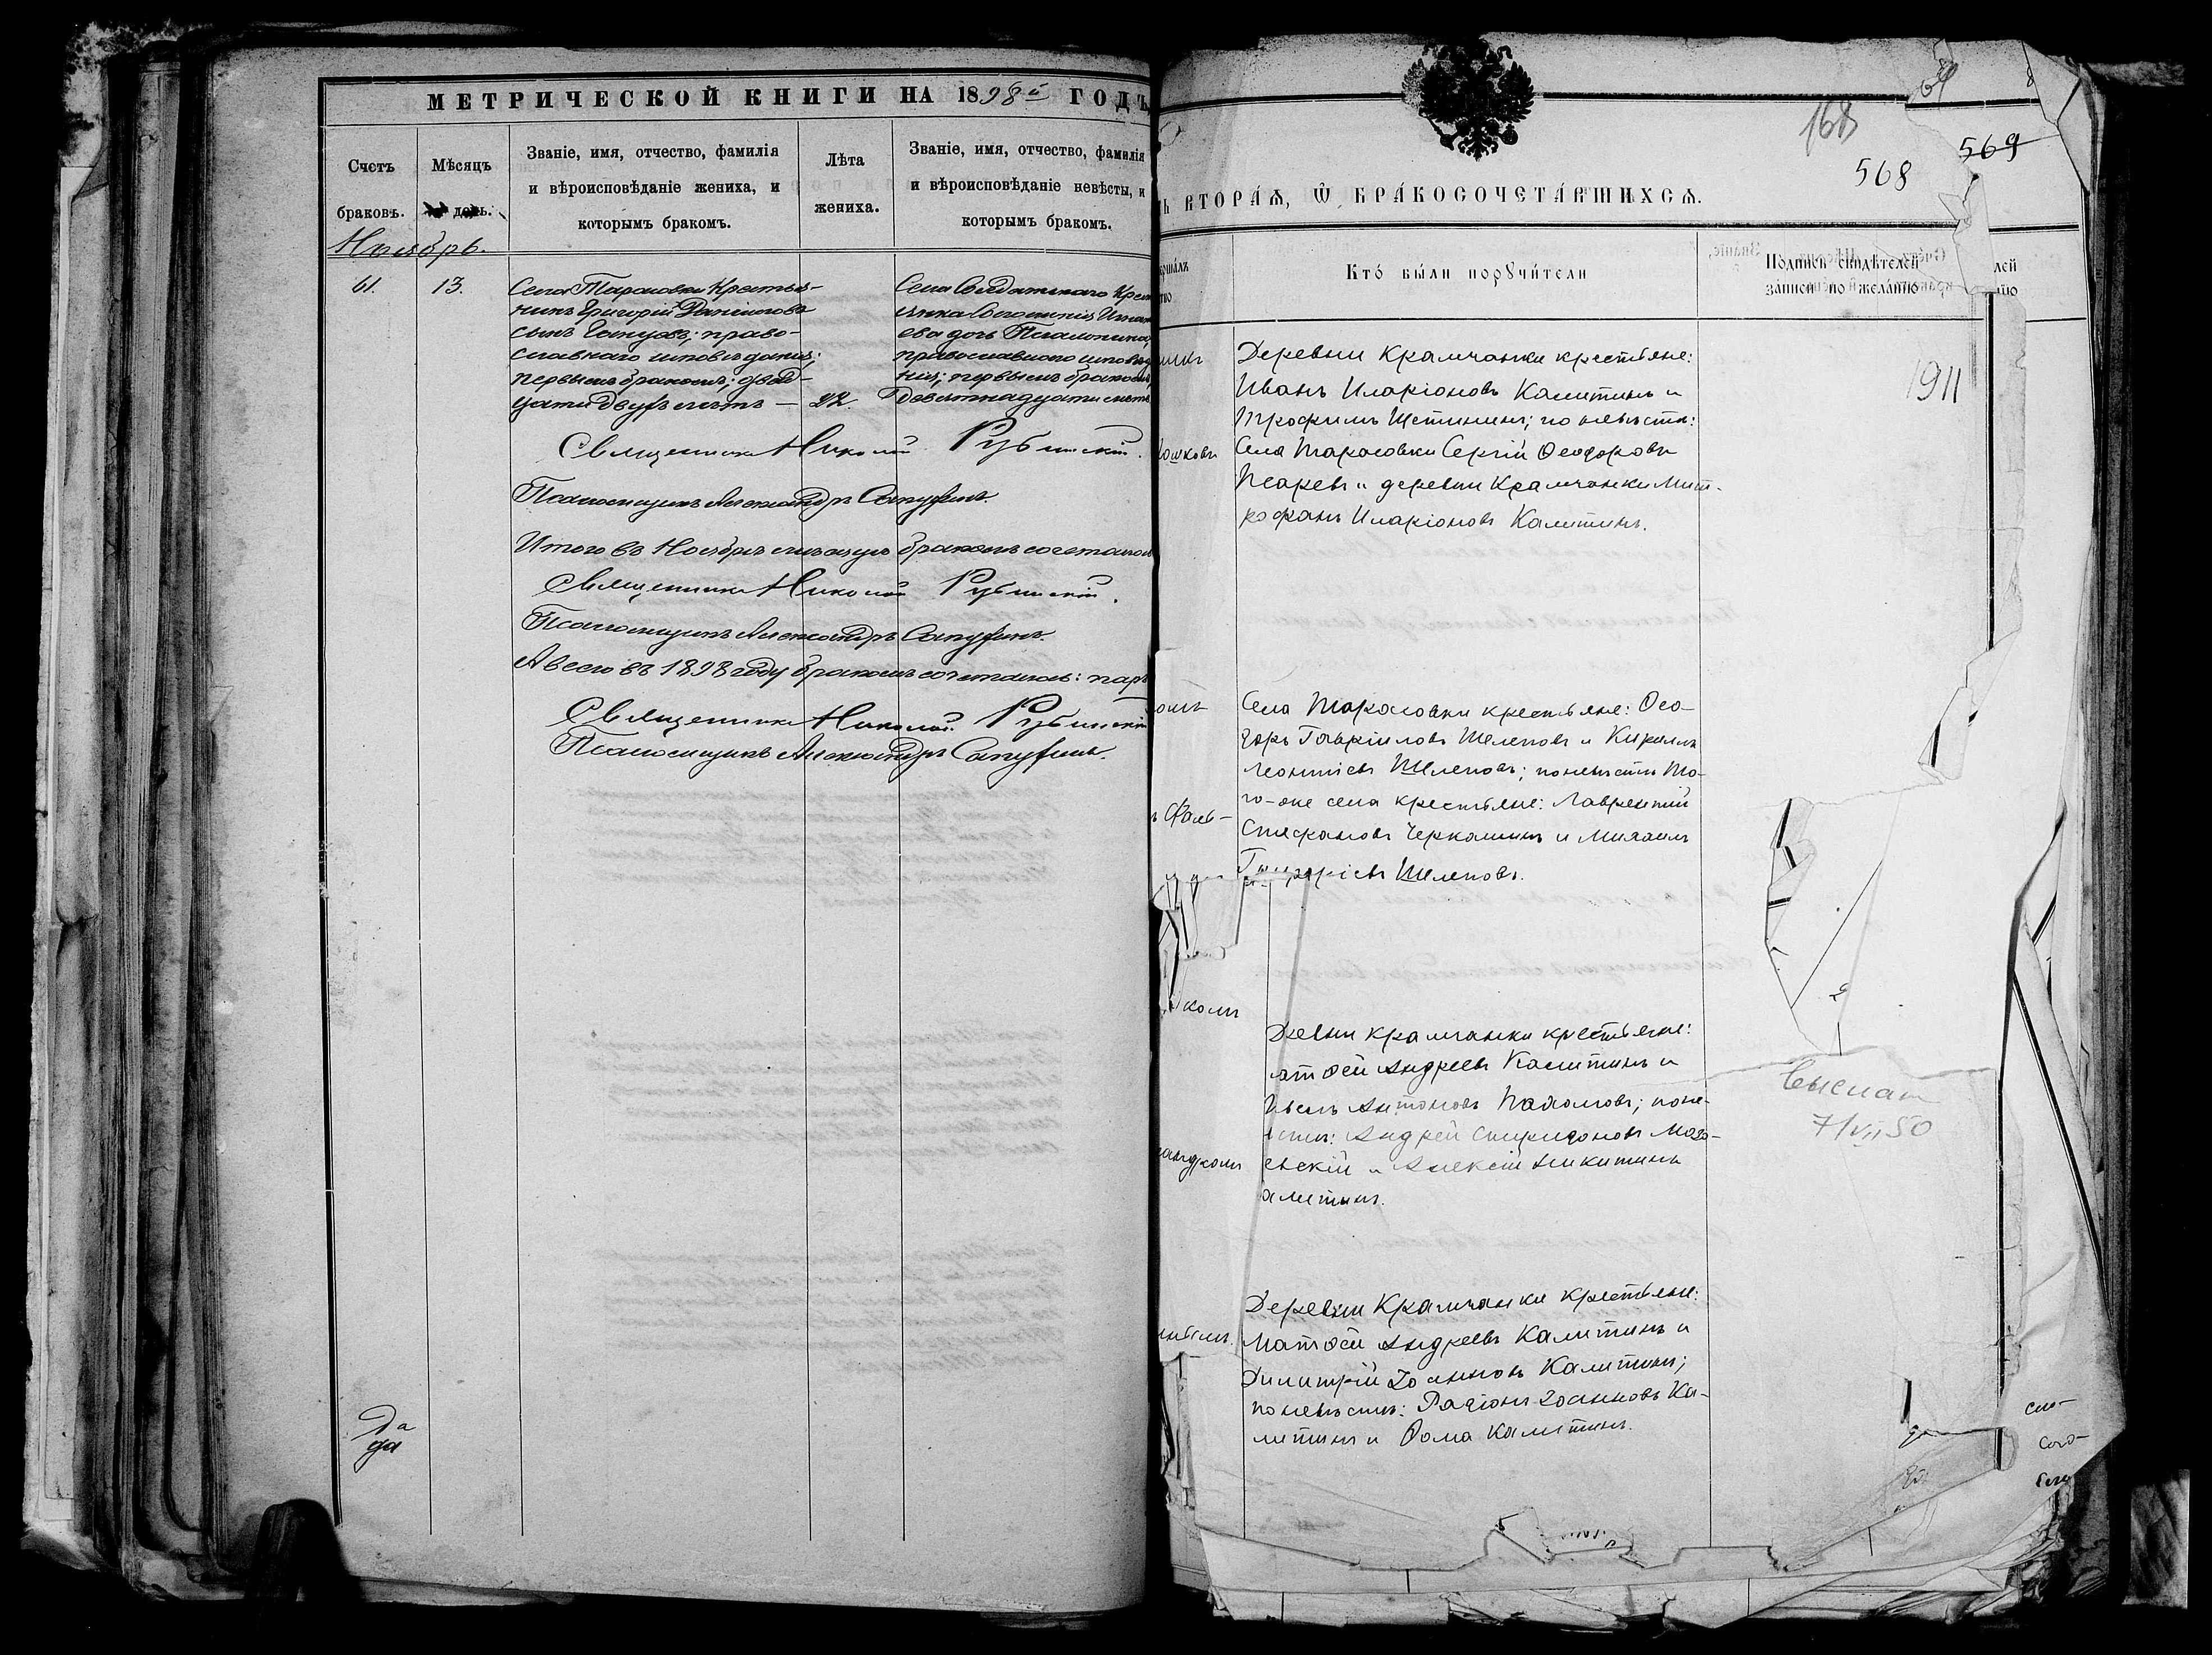 МЕТРИЧЕСКОЙ КНИГИ НА 1898й ГОДЪ
Счетъ браковъ.
Мѣсяцъ и день.
Званіе, имя, отчество, фамилія
и вѣроисповѣданіе жениха, и
которымъ бракомъ.
Лѣта
жениха.
Званіе, имя, отчество, фамилія
и вѣроисповѣданіе невѣсты, и
которымъ бракомъ.
Ноябрь.
61. 13.
Села Тарасовки Крестья-
нинъ Григорій
сынъ право-
славнаго исповѣданія;
первымъ бракомъ; двад-
цати двухъ лѣтъ — 22.
Села Солдатскаго Крест
янка
ева дочь
православнаго исповѣда
нія; первымъ бракомъ,
девятнадцати лѣтъ
Священникъ Николай Рубинскій.
Псаломщикъ Александръ
Итого въ Ноябрѣ мѣсяцѣ бракомъ сочеталось
Священникъ Николай Рубинскій.
Псаломщикъ Александръ
А всего въ 1898 году бракомъ сочеталось: паръ
Священникъ Николай Рубинскій
Псаломщикъ Александръ
Да
да
168
568 569
ВТОРАЯ, Ѿ БРАКОСОЧЕТАВШИХСЯ.
Кто были поручители
Подпись свидѣтелей
записи по желанію
Деревни Крамчанки крестьяне:
Иванъ Иларіоновъ Калитинъ и
Трофимъ Щетининъ; по невѣстѣ:
Села Тарасовки Сергій Ѳеодоровъ
Псаревъ и деревни Крамчанки Мит-
рофанъ Иларіоновъ Калитинъ.
1911
Села Тарасовки крестьяне: Ѳео-
доръ Гавріиловъ Шелеповъ и Кириллъ
Леонтіевъ Шелеповъ; по невѣстѣ то-
го-же села крестьяне: Лаврентій
Стефановъ Черкашинъ и Михаилъ
Шелеповъ.
евни Крамчанки крестьяне:
атѳей Андреевъ Калитинъ и
Антоновъ Пахомовъ; по не-
Андрей Спиридоновъ
и Алексій Никитинъ
алитинъ.
выслат
7/VII 50
Деревни Крамчанки крестьяне:
Матѳей Андреевъ Калитинъ и
Димитрій Іоанновъ Калитинъ;
по невѣстѣ: Родіонъ Іоанновъ Ка-
литинъ и Ѳома Калитинъ.